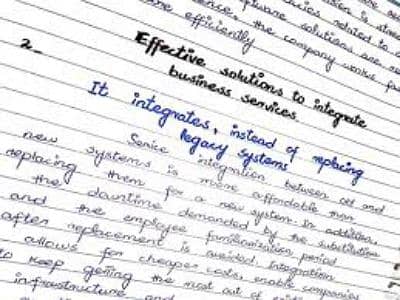 software
related to
solutions are
sence, the company works
efficiently
2_
Effective solutions to integrate
business services
It integrates, instead of replacing
legacy systems
Service integration between old and
new systems is more affordable than
replacing them for a new system. In addition,
the downtime demanded by the substitution
and the employee familiarization period
after replacement is avoided. Integration
allows for cheaper costs, enable companies
to keep getting the most out of
infrastructure and